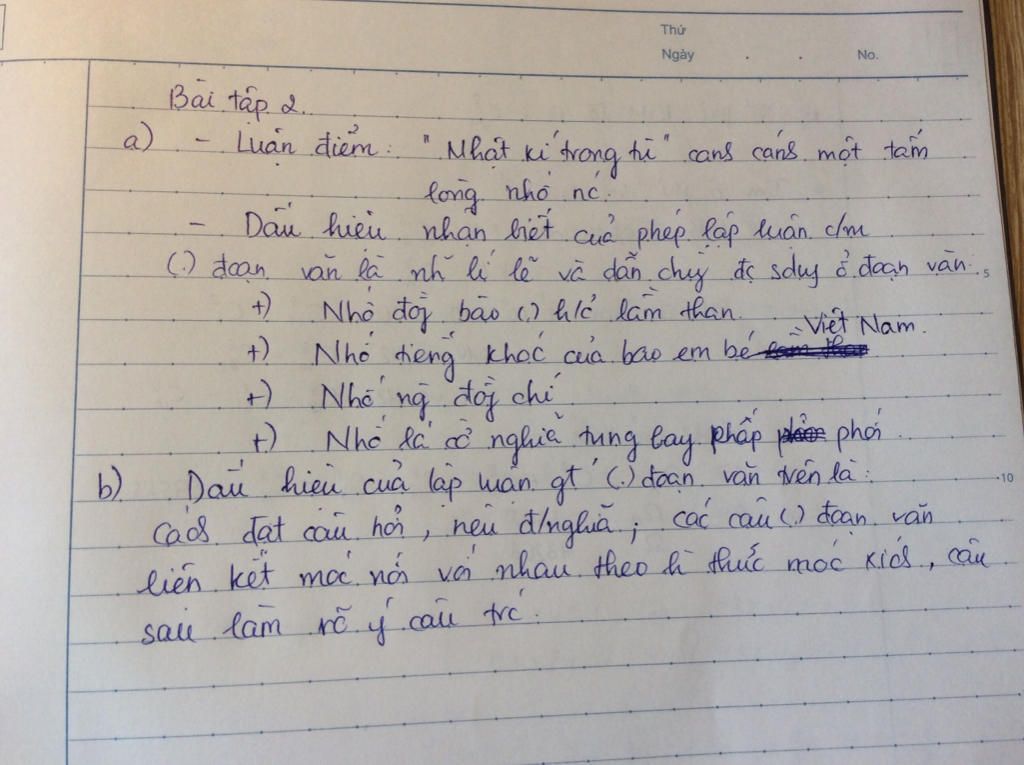 Thứ
Ngày . . No.
Bài tập 2.
a) - Luận điểm: "Nhật kí trong tù" cans cáns một tấm
lòng nhớ nc.
- Dấu hiệu nhận biết của phép lập luận c/m
(.) đoạn văn là nh~ lí lẽ và dẫn chứg đc sdụg ở đoạn văn:
5
+) Nhớ đồg bào (.) h/c lầm than.
+) Nhớ tiếng khóc của bao em bé Việt Nam.
+) Nhớ ng đồg chí
+) Nhớ lá cờ nghĩa tung bay phấp phới
b) Dấu hiệu của lập luận gt (.) đoạn văn trên là:
10
Cács đặt câu hỏi, nêu đ/nghĩa; các câu (.) đoạn văn
liên kết móc nối với nhau theo h thức móc xícs, câu
sau làm rõ ý câu trc.